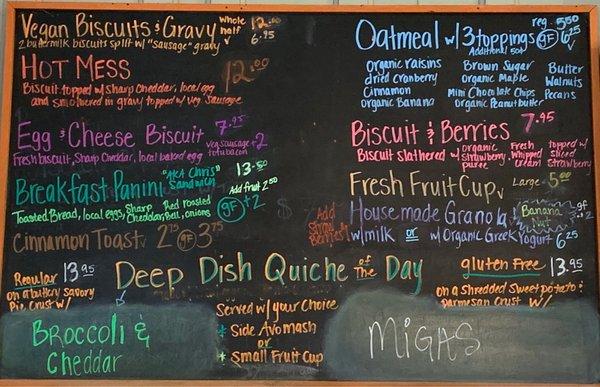 Vegan Biscuits & Gravy whole 12.00
half 6.95 V
2 buttermilk biscuits split w/ "sausage" gravy
HOT MESS 12.00
Biscuit topped w/ sharp Cheddar, local egg
and smothered in gravy topped w/ veg Sausage
Egg & Cheese Biscuit 7.95
Fresh biscuit, Sharp Cheddar, local baked egg
veg sausage +2
tofubacon
Breakfast Panini "AKA Chris" Sandwich 13.50
Toasted Bread, local eggs, Sharp Cheddar, Red roasted
bell, onions
Add fruit 2.50
GF +2
Cinnamon Toast V 2.75 GF 3.75
Oatmeal w/ 3 toppings reg. 5.50
Additional 50¢ GF 6.25 V
organic raisins Brown Sugar Butter
dried cranberry organic Maple Walnuts
Cinnamon Mini Chocolate Chips Pecans
organic Banana organic Peanutbutter
Biscuit & Berries 7.95
Biscuit slathered w/ organic strawberry puree Fresh Whipped Cream topped w/ sliced strawberry
Fresh Fruit Cup V Large 5.00
Add Straw Berries!
Housemade Granola V
w/ milk or w/ Organic Greek Yogurt 6.25
Banana Nut
gf +.2
V
Deep Dish Quiche of The Day
Regular 13.95
on a buttery savory
Pie Crust w/
Broccoli &
Cheddar
Served w/ your Choice
+ Side Avomash
or
+ Small Fruit Cup
gluten Free 13.95
on a Shredded Sweet potato &
parmesan Crust w/
MiGAS